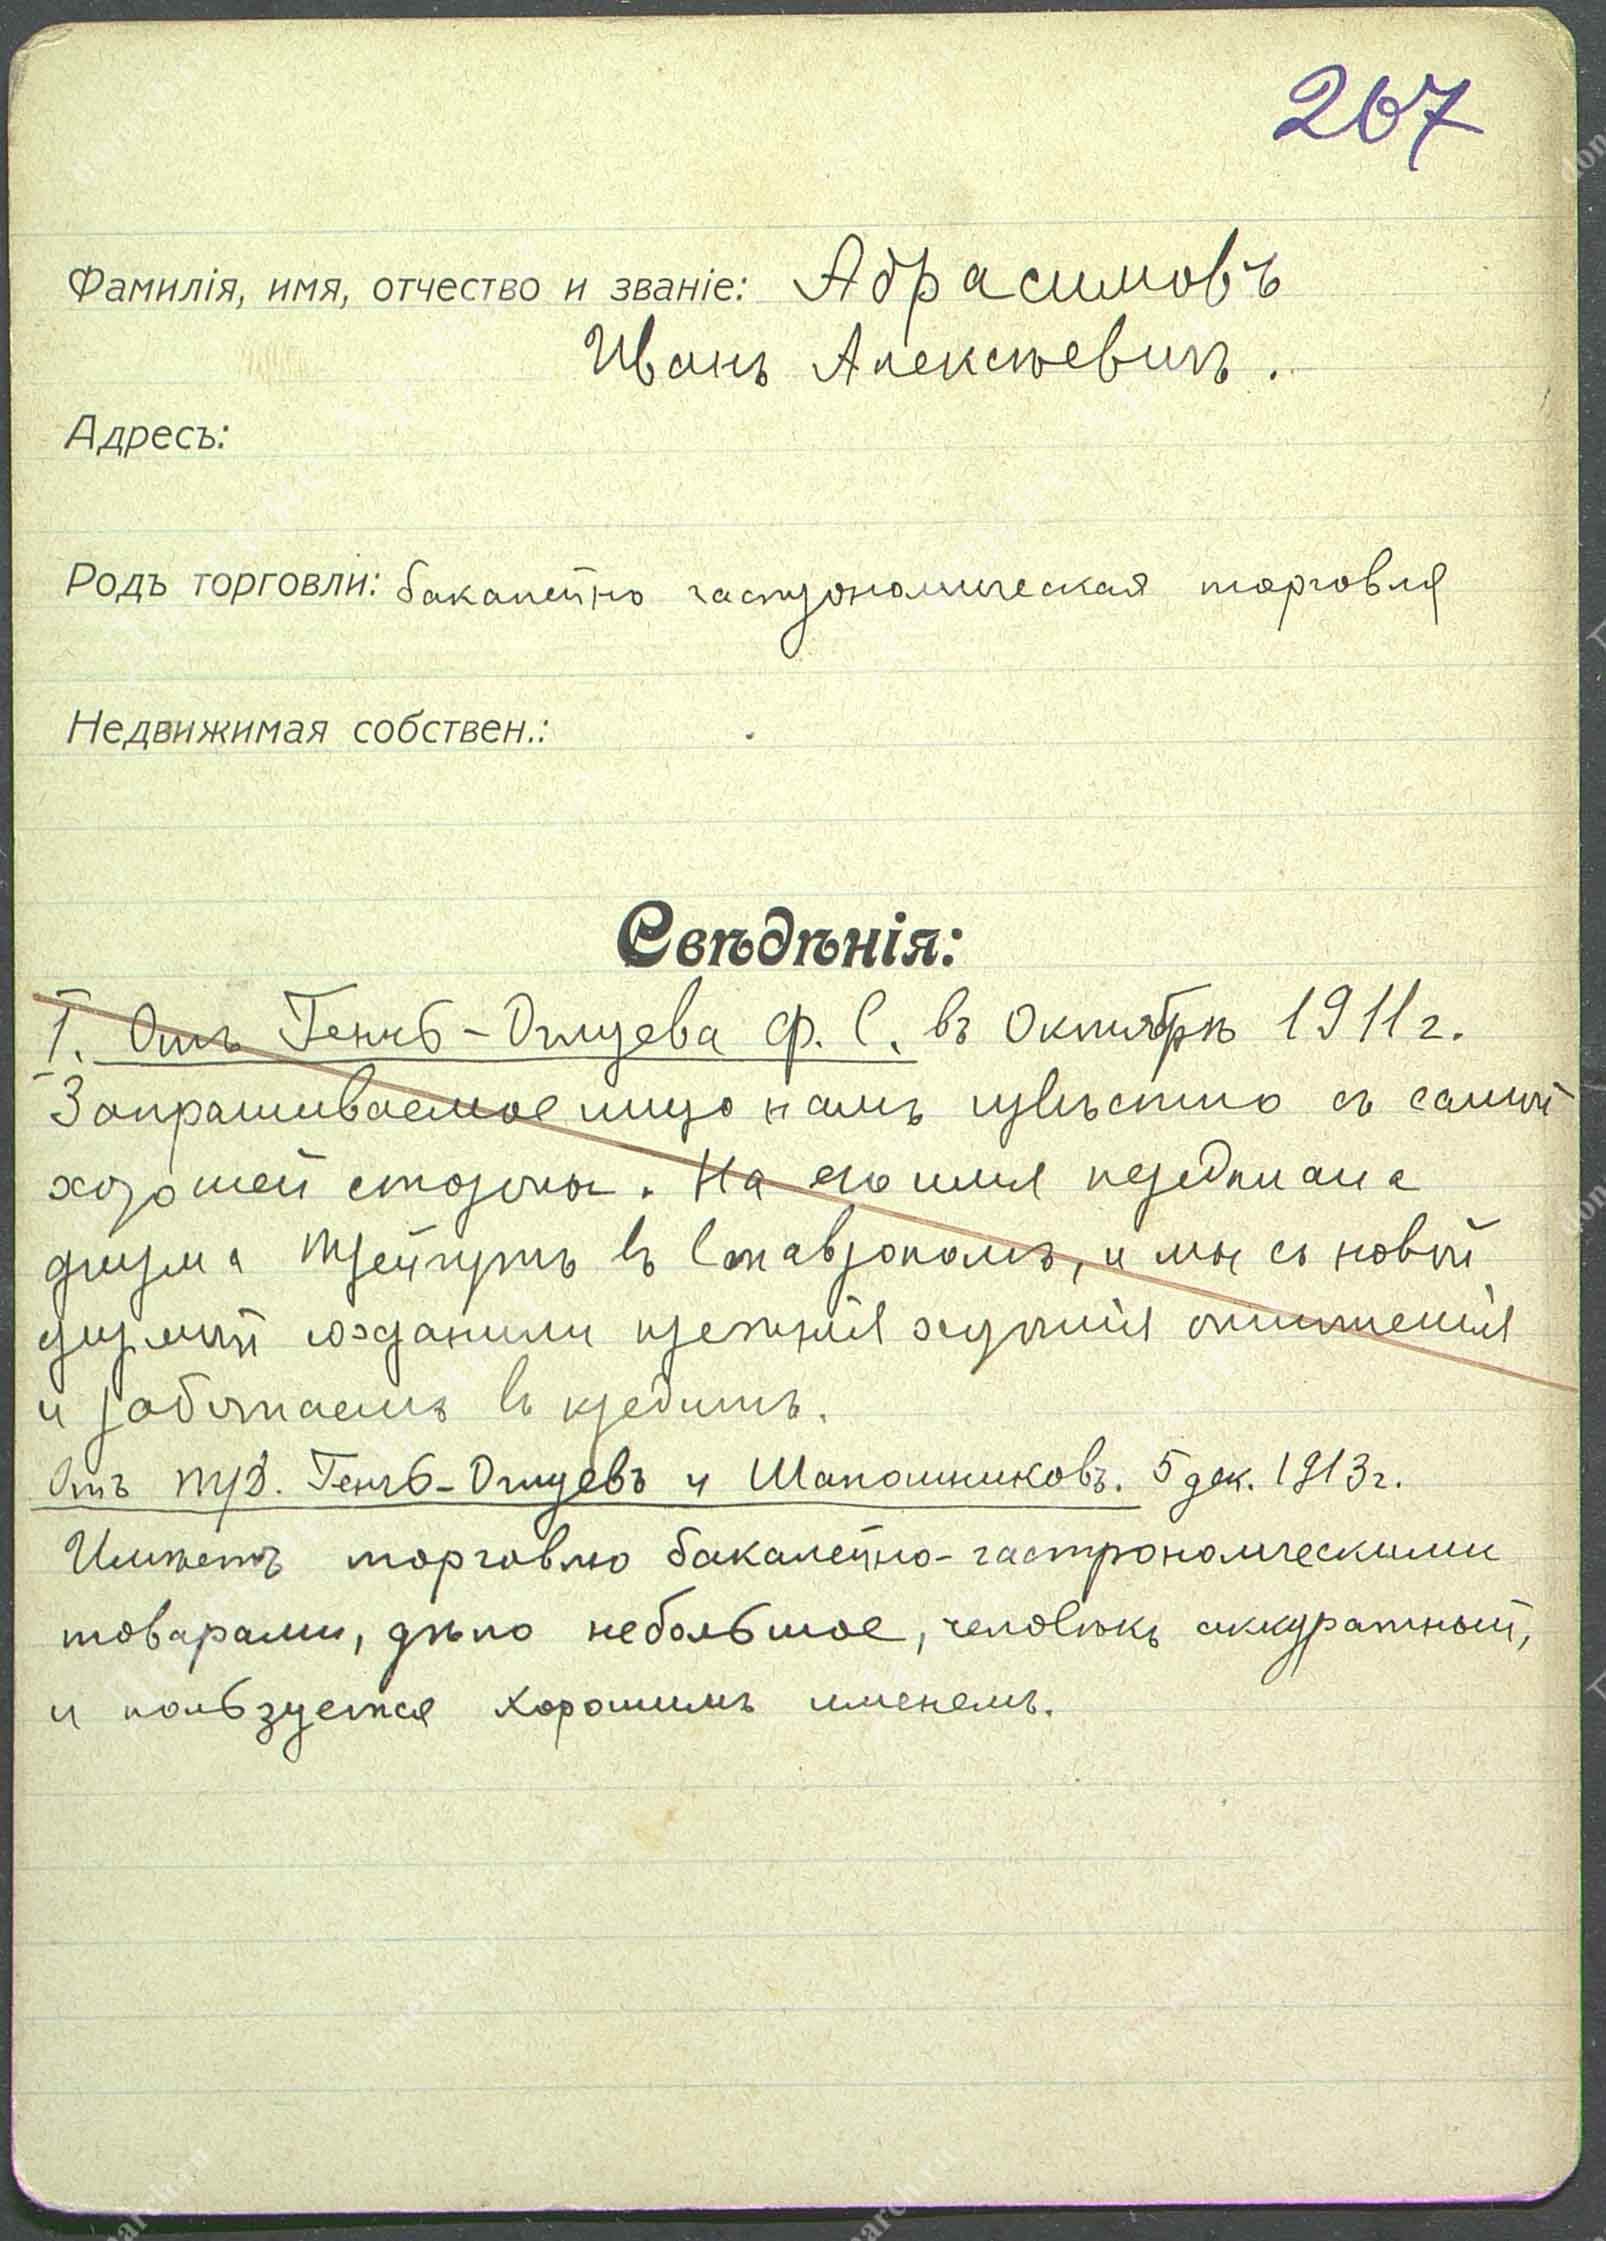 207
Фамилія, имя, отчество и званіе: Абрасимовъ
Иванъ Алексѣевичъ.
Адресъ:
Родъ торговли: бакалейно гастрономическая торговля
Недвижимая собствен.:
Свѣдѣнія:
I. Отъ Генчъ-Оглуева Ф. С. въ Октябрѣ 1911 г.
Запрашиваемое лицо намъ извѣстно съ самой
хорошей стороны. На его имя передѣлана
фирма Трейгутъ въ Ставрополѣ, и мы съ новой
фирмой сохранили прежнія хорошія отношенія
и работаемъ въ кредитъ.
Отъ т/д. Генчъ-Оглуевъ и Шапошниковъ. 5 дек. 1913 г.
Имѣетъ торговлю бакалейно-гастрономическими
товарами, дѣло небольшое, человѣкъ аккуратный,
и пользуется хорошимъ именемъ.